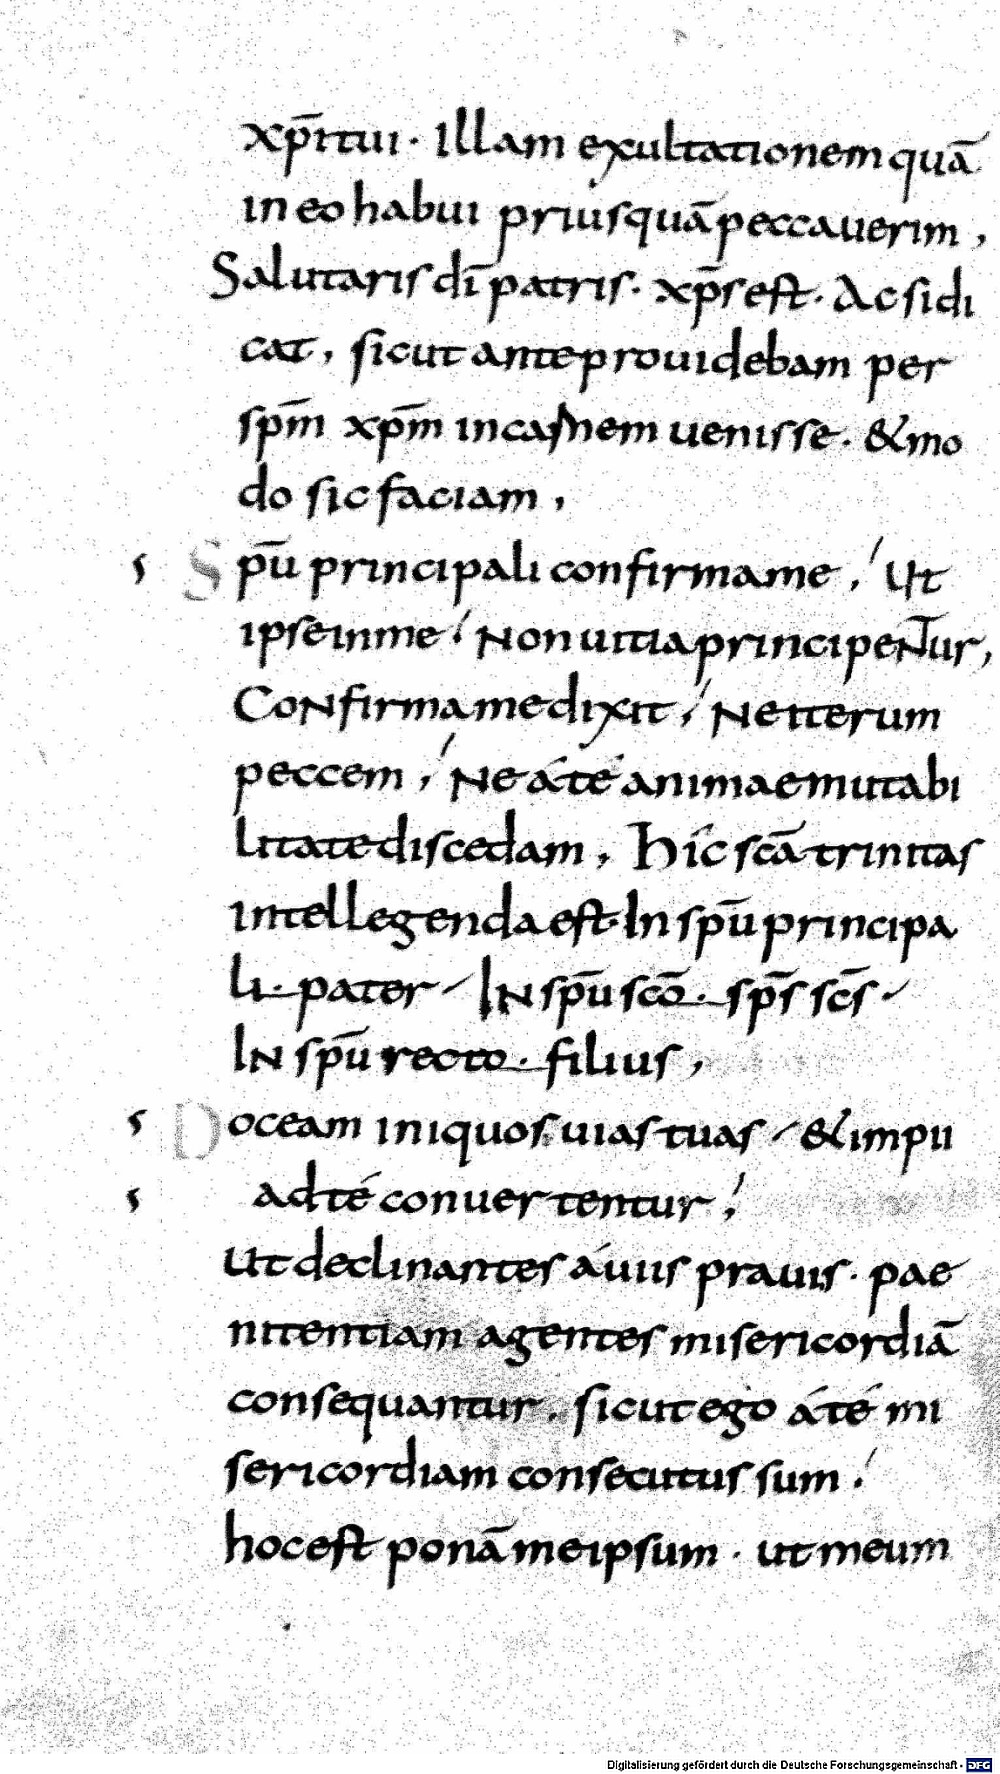 xp̄ı tui · Illam exultationem quā
in eo habui priusquā peccauerim ,
Salutaris dī patris · xp̄s est · Ac si di
cat , sicut ante prouidebam per
sp̄m xp̄m in carnem uenisse · & mo
do sic faciam ,
s Sp̄u principali confirma me , Ut
ipse in me ! Non uitia principeNT̄ur ,
CoNfirma me dixit , Ne iterum
peccem , Ne á té animae mutabi
litate discedam , Híc scā trinitas
intellegenda est · In sp̄u principa
li · pater / IN sp̄u scō · sp̄s sc̄s /
IN sp̄u recto · filius ,
s Doceam iniquos uias tuas / & impii
s ad té conuertentur ,
Ut declinantes á uiis prauis · pae
nitentiam agentes misericordiā
consequantur , sicut ego á té mi
sericordiam consecutus sum ,
hoc est ponā me ipsum · ut meum
Digitalisierung gefördert durch die Deutsche Forschungsgemeinschaft - DFG